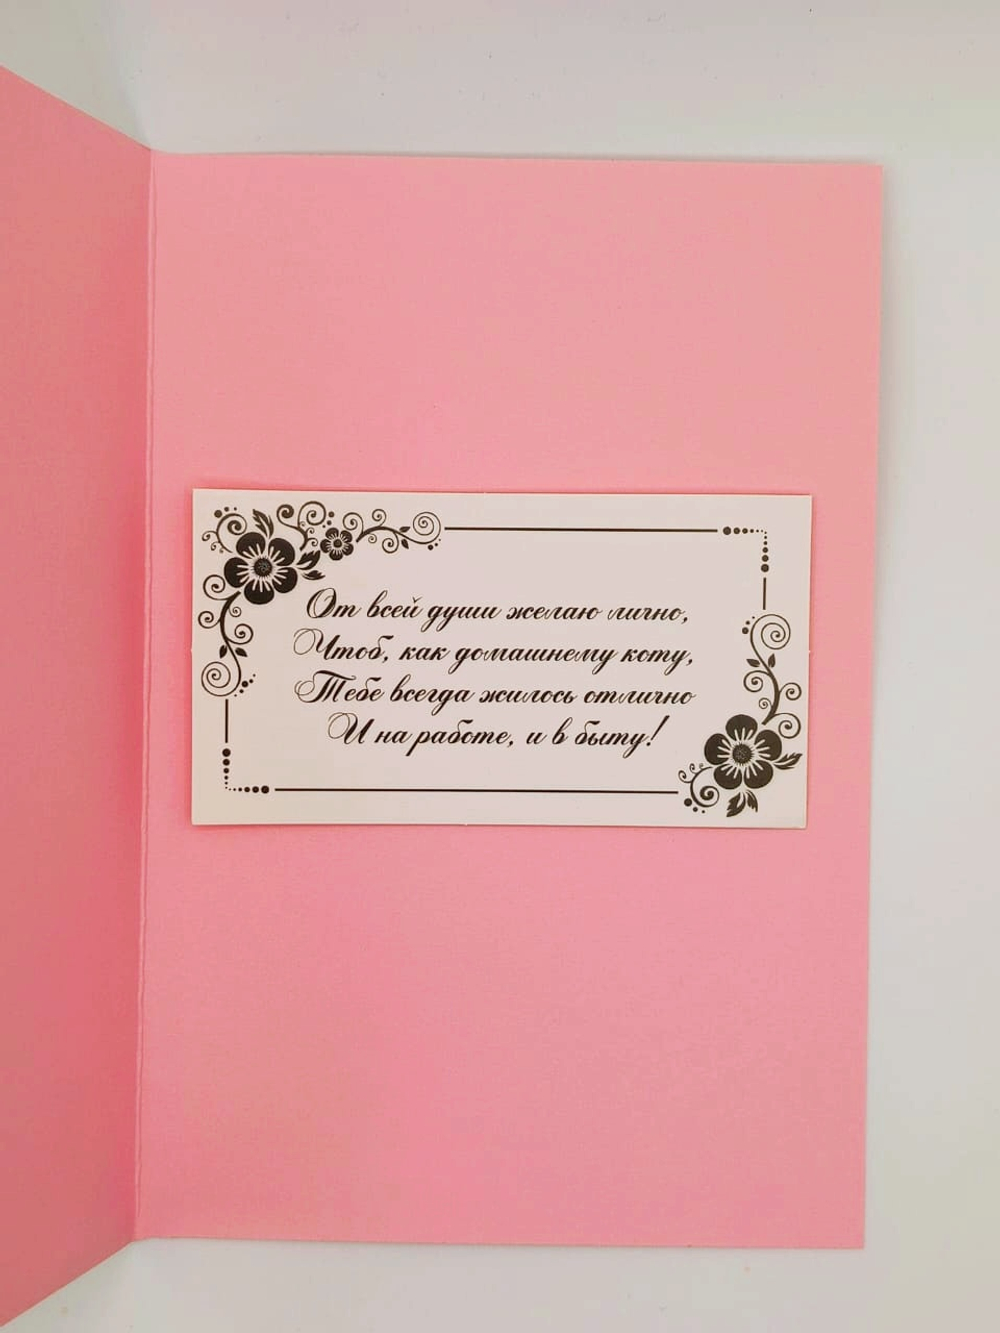 От всей души желаю лично,
Чтоб, как домашнему коту,
Тебе всегда жилось отлично
И на работе, и в быту!